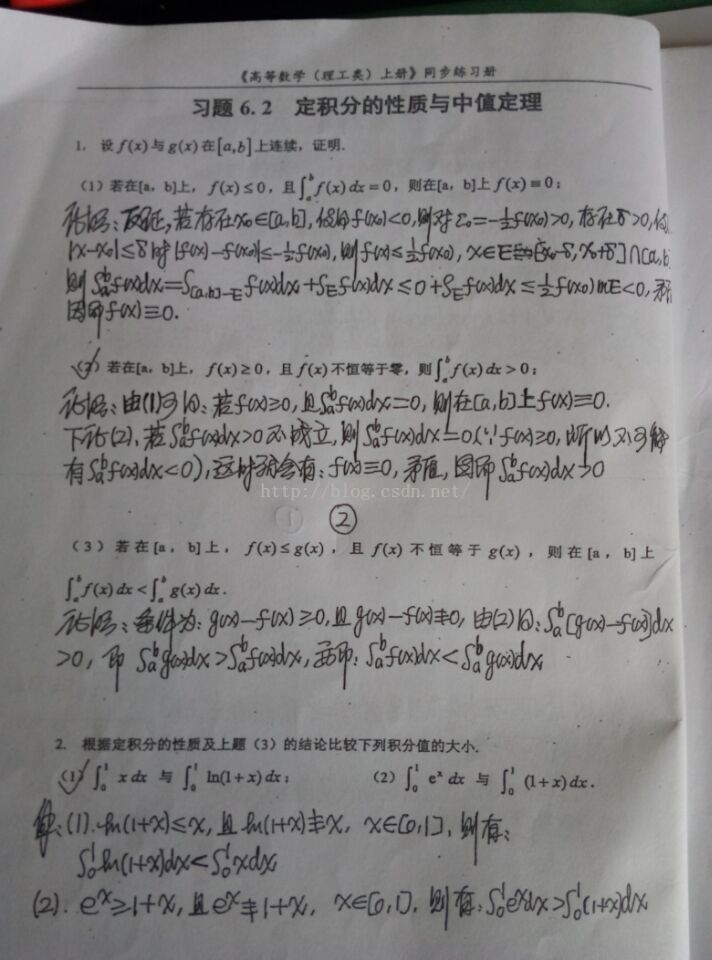 《高等数学（理工类）上册》同步练习册
习题 6.2 定积分的性质与中值定理
1. 设 f(x) 与 g(x) 在 [a,b] 上连续，证明.
（1）若在[a，b]上， f(x)≤0，且∫_a^b f(x)dx=0，则在[a，b]上 f(x)≡0；
证明：反证，若存在x₀∈[a,b]，使得f(x₀)<0，则对ε₀=-½f(x₀)>0，存在δ>0，使
|x-x₀|≤δ时|f(x)-f(x₀)|≤-½f(x₀)，则f(x)≤½f(x₀)，x∈E=[x₀-δ,x₀+δ]∩[a,b]
则∫_a^b f(x)dx=∫_{[a,b]-E} f(x)dx+∫_E f(x)dx≤0+∫_E f(x)dx≤½f(x₀)mE<0，矛盾
因而f(x)≡0.
（2）若在[a，b]上， f(x)≥0，且 f(x) 不恒等于零，则∫_a^b f(x)dx>0；
证明：由(1)可得：若f(x)≥0，且∫_a^b f(x)dx=0，则在[a,b]上f(x)≡0.
下证(2)，若∫_a^b f(x)dx>0不成立，则∫_a^b f(x)dx=0(∵f(x)≥0，所以不可能
有∫_a^b f(x)dx<0)，这时就会有：f(x)≡0，矛盾，因而∫_a^b f(x)dx>0
http://blog.csdn.net/
① ②
（3）若在[a，b]上， f(x)≤g(x)，且 f(x) 不恒等于 g(x)，则在[a，b]上
∫_a^b f(x)dx<∫_a^b g(x)dx.
证明：条件为：g(x)-f(x)≥0，且g(x)-f(x)≢0，由(2)得：∫_a^b[g(x)-f(x)]dx
>0，即∫_a^b g(x)dx>∫_a^b f(x)dx，亦即：∫_a^b f(x)dx<∫_a^b g(x)dx
2. 根据定积分的性质及上题（3）的结论比较下列积分值的大小.
（1）∫_0^1 x dx 与 ∫_0^1 ln(1+x)dx； （2）∫_0^1 e^x dx 与 ∫_0^1 (1+x)dx.
解：(1). ln(1+x)≤x，且ln(1+x)≢x，x∈[0,1]，则有：
∫_0^1 ln(1+x)dx<∫_0^1 xdx
(2). e^x≥1+x，且e^x≢1+x，x∈[0,1]，则有：∫_0^1 e^x dx>∫_0^1(1+x)dx